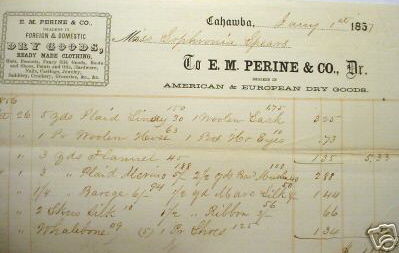 E. M. PERINE & CO.,
DEALERS IN
FOREIGN & DOMESTIC
DRY GOODS,
READY MADE CLOTHING,
Hats, Bonnets, Fancy Silk Goods, Boots
and Shoes, Paints and Oils, Hardware,
Nails, Castings, Jewelry,
Saddlery, Crockery, Groceries, &c., &c.
Cahawba, Jany 1st 1857
Miss Sophronia Spears
To E. M. PERINE & CO., Dr.
DEALERS IN
AMERICAN & EUROPEAN DRY GOODS.
26 5 yds Plaid Linsey 30 150 1 Woolen Sack 175 3 25
" 1 Pr Woolen Hose 63 1 Box H & Eyes 10 .73
" 3 yds Flannel 45 1 35 5.33
" 3 " Plaid Merino 188 2/2 yds 100 2 88
" 1/8 " Barege 6/- 94 1/2 yd Silk 50 1 44
" 2 Skns Silk 10 1 1/2 " Ribbon 3/- 56 66
" Whalebone 09 (5) 1 Pr Shoes 125 1 34
$